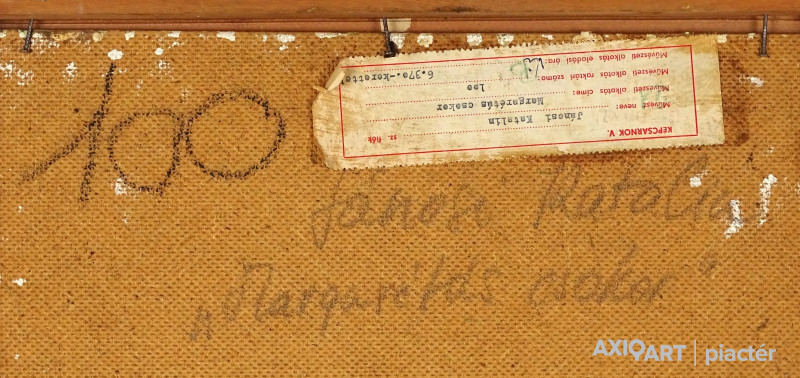 100
KÉPCSARNOK V. sz. fiók:
Művész neve: Jánosi Katalin
Művészeti alkotás címe: Margarétás csokor
Művészeti alkotás raktári száma: 100
Művészeti alkotás eladási ára: 6.370.-kerettel
Jánosi Katalin
„Margarétás csokor"
AXIOART | piactér